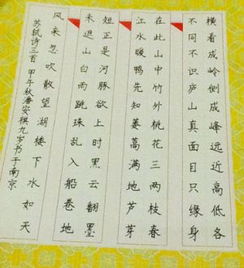 横看成岭侧成峰远近高低各
不同不识庐山真面目只缘身
在此山中竹外桃花三两枝春
江水暖鸭先知蒌蒿满地芦芽
短正是河豚欲上时黑云翻墨
未遮山白雨跳珠乱入船卷地
风来忽吹散望湖楼下水如天
苏轼诗三首 甲午秋潘安祺九岁书于南京